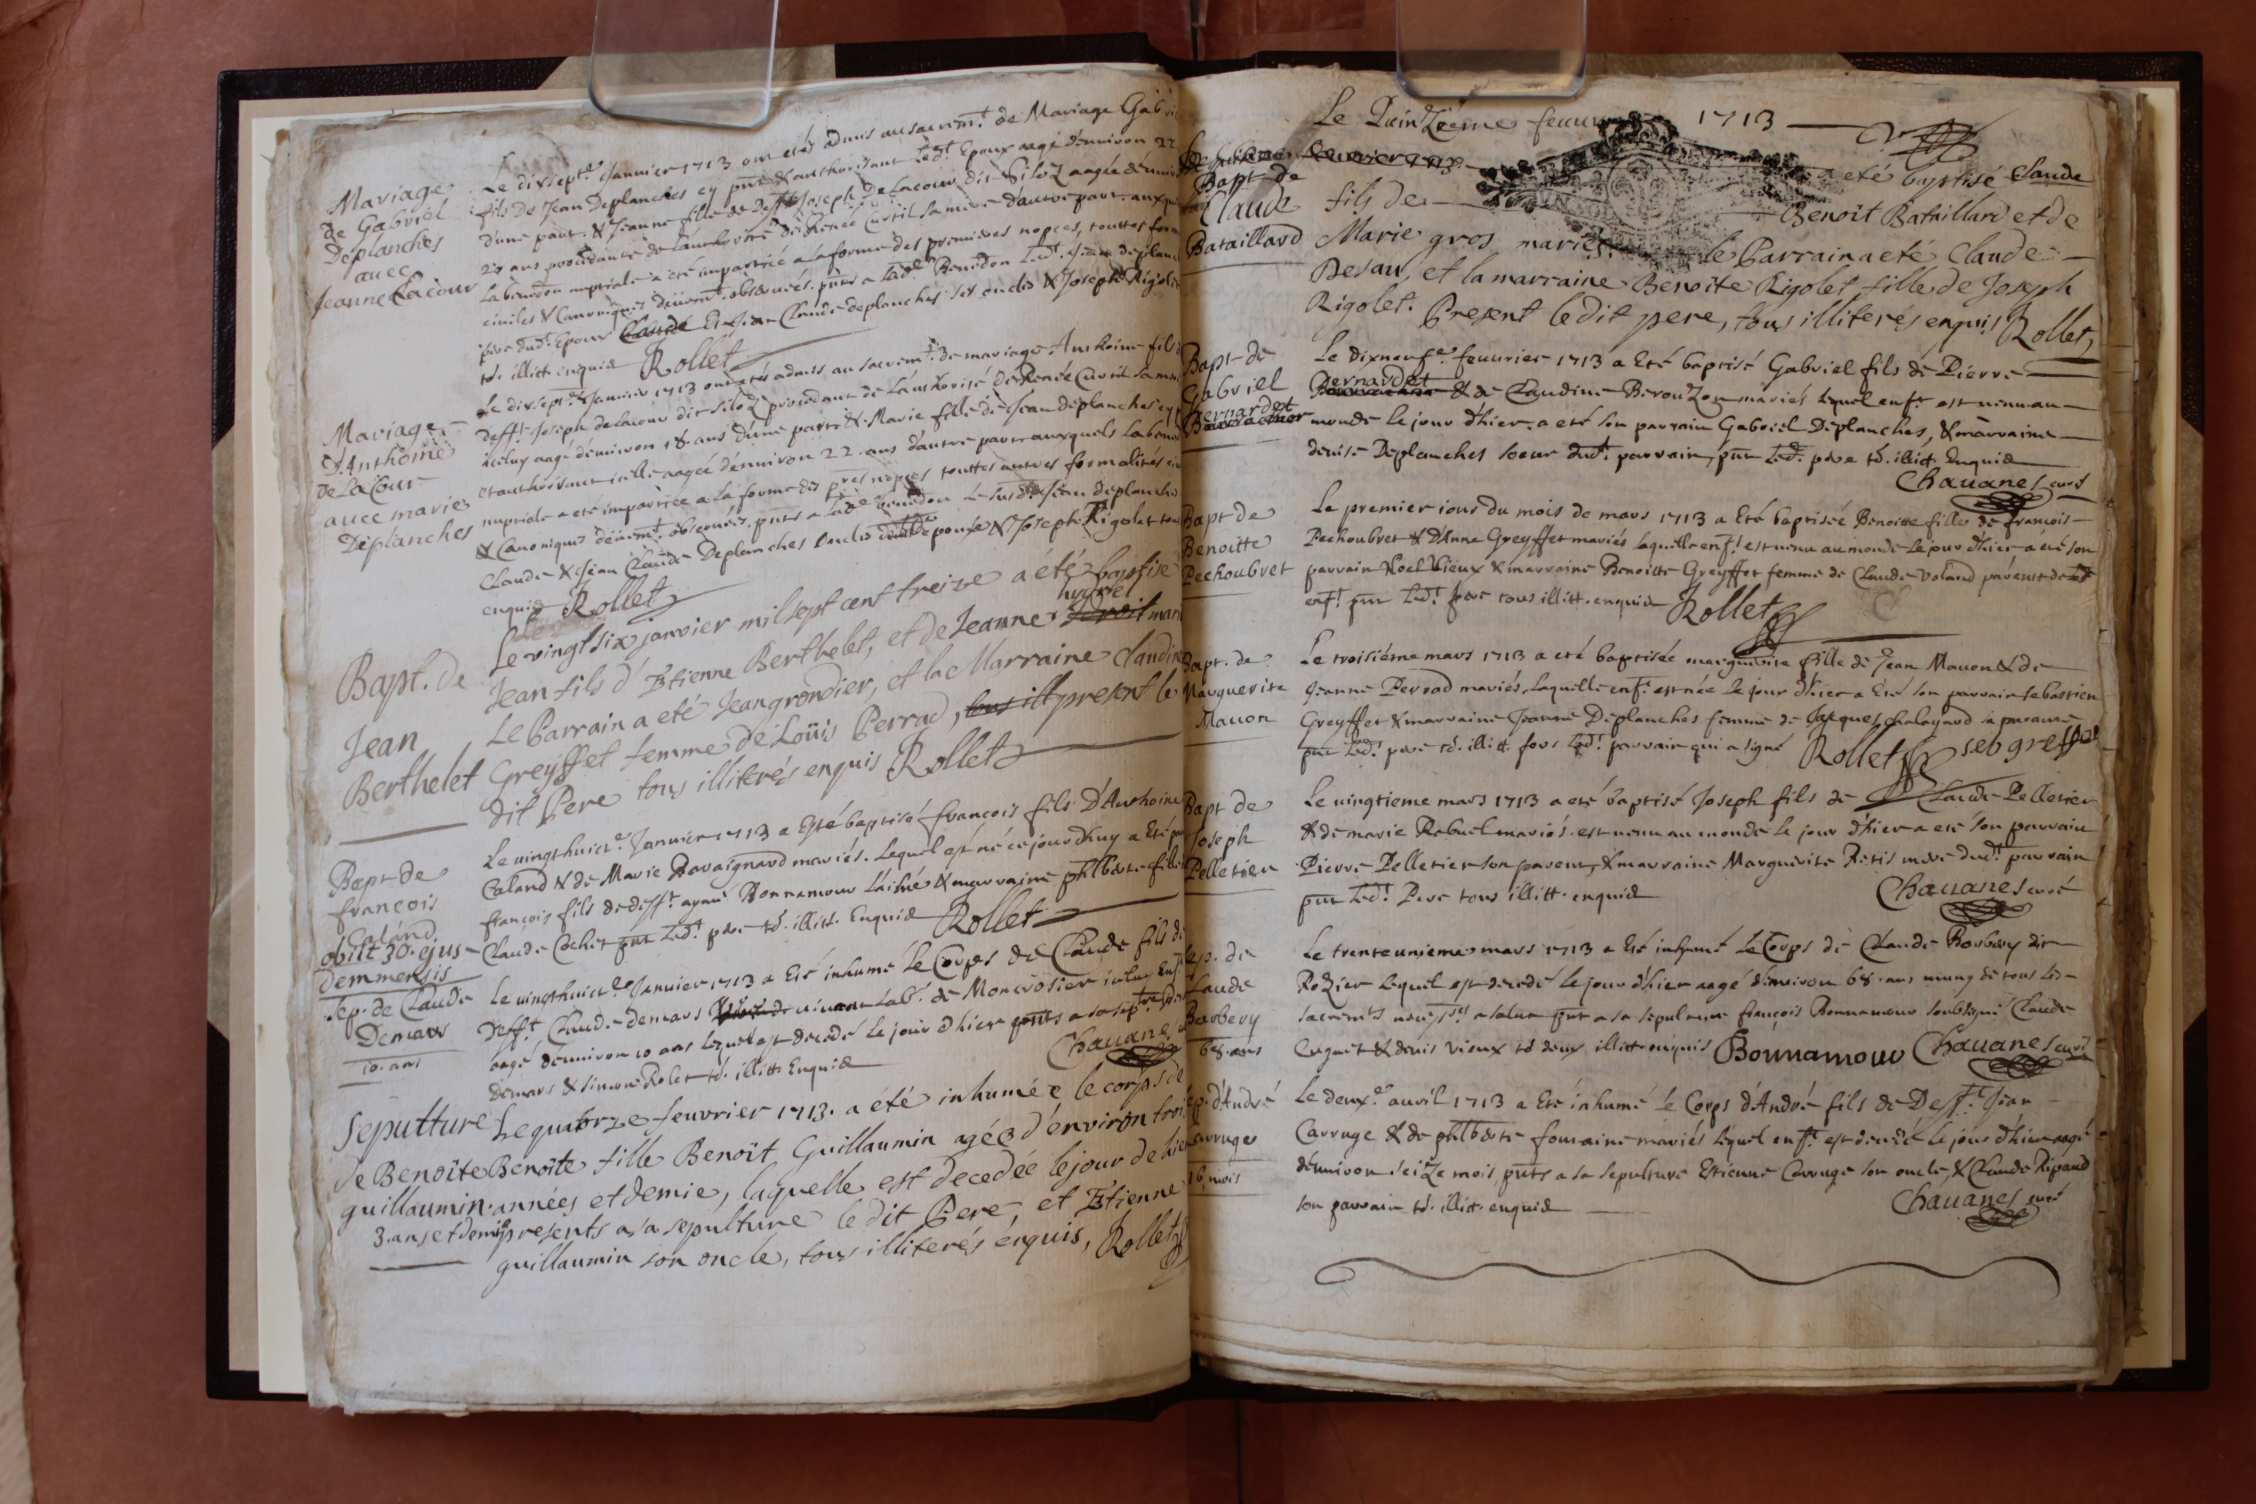 Mariage
de Gabriel
Deplanches
avec
Jeanne Lacour
Le dixsept.e Janvier 1713 ont etés admis au sacrem.t de Mariage Gabriel
fils de Jean Deplanches cy pnt & authorisant led.t Epoux aagé d'environ 22
d'une part. & Jeanne fille de deff.t Joseph Delacour dit Siloz aagée d'environ
27 ans procedante de l'authorité de Renée Curtil sa mere d'autre part. auxquels
La benedon nuptiale a été impartiée a la forme des premieres nopces, touttes formalités
civiles & Canoniques deüem.t observées. pnts a lad.e Benedon led.t Jean deplanches
pere dud.t Epoux Claude & Jean Claude deplanches ses oncles & Joseph Rigolet
ts. illitt. enquis Rollet
Mariage
d'Anthoine
De Lacour
avec marie
Deplanches
Le dixsept.e Janvier 1713 ont etés admis au sacrem.t de mariage Anthoine fils de
deff.t Joseph delacour dit siloz procedant de l'authorité de Renée Curtil sa mere
iceluy aagé d'environ 18 ans d'une part & Marie fille de Jean deplanches cy pnt
et authorisant icelle aagée d'environ 22 ans d'autre part auxquels la benedon
nuptiale a eté impartiée a la forme des pres nopces touttes autres formalités civiles
& Canoniques deüem.t observées. pnts a lad.e benedon le susd.t Jean deplanches
Claude & Jean Claude Deplanches oncles de l'epouse & Joseph Rigolet tous
enquis Rollet
Bapt. de
Jean
Berthelet
Le vingt six janvier mil sept cent treize a été baptisé
Jean fils d'Etienne Berthelet, et de Jeanne Droit mariés
Le Parrain a eté Jean grondier, et la Marraine Claudine
Greyffet femme de Loüis Perrad, tous illt present le
dit Pere tous illiterés enquis Rollet
Bapt de
françois
Caland
obiit 30. ejus-
dem mensis
Le vingthuict.e Janvier 1713 a Esté baptisé françois fils d'Anthoine
Caland & de Marie Ravaignard mariés. Lequel est né ce jourdhuy a Eté
françois fils de deff.t aymé Bonnamour l'aisné & marraine philberte fille
Claude Cochet pnt led.t pere ts. illitt. Enquis Rollet
Sep. de Claude
Demars
10. ans
Le vingthuict.e Janvier 1713 a Eté inhumé Le Corps de Claude fils de
deff.t Claude demars vivant Lab.r de Moncrosier iceluy
aagé d'environ 10 ans lequel est decedé le jour d'hier pnts a sa sep.re
demars & simone Rolet ts. illitt. Enquis Chauane
Sepulture
de Benoîte
guillaumin
3. ans et demi
Le quatorze feuvrier 1713. a été inhumée le corps de
Benoîte fille Benoit Guillaumin agée d'environ trois
années et demie, laquelle est decedée le jour de hier
presents a sa sepulture le dit Pere, et Etienne
guillaumin son oncle, tous illiterés enquis, Rollet
Le Quinzieme feuvrier 1713
Bapt de
Claude
Bataillard
a eté baptisé Claude
fils de Benoit Bataillard et de
Marie gros mariés. le Parrain a eté Claude
Desau, et la marraine Benoite Rigolet fille de Joseph
Rigolet. Present le dit pere, tous illiterés enquis Rollet
Bapt de
Gabriel
Bernardet
Le dixneuf.e feuvrier 1713 a Eté baptisé Gabriel fils de Pierre
Bernardet & de Claudine Berouzon mariés lequel enf.t est venu au
monde le jour d'hier. a eté son parrain Gabriel Deplanches, & marraine
denise Deplanches soeur dud.t parrain, pnt led.t pere ts. illitt. Enquis
Chauanes curé
Bapt de
Benoitte
Pechoubret
Le premier jour du mois de mars 1713 a Eté baptisée Benoitte fille de françois
Pechoubret & d'Anne Greyffet mariés laquelle enf.t est venu au monde le jour d'hier a eté son
parrain Noel Vieux & marraine Benoitte Greyffet femme de Claude Voland parente de lad
enf.t pnt led.t pere tous illitt. enquis Rollet
Bapt. de
Marguerite
Mauon
Le troisiéme mars 1713 a eté baptisée marguerite fille de Jean Mauon & de
Jeanne Perrad mariés, laquelle enf.t est née le jour d'hier a Eté son parrain sebastien
Greyffet & marraine Jeanne Deplanches femme de Jacques Chalayard sa parente
pnt led.t pere ts. illitt. fors led.t parrain qui a signé Rollet seb greffet
Bapt de
Joseph
Pelletier
Le vingtieme mars 1713 a eté baptisé Joseph fils de Claude Pelletier
& de marie Rabuel mariés. est venu au monde le jour d'hier a eté son parrain
Pierre Pelletier son parent, & marraine Marguerite Retis mere dud.t parrain
pnt led.t Pere tous illitt. enquis Chauanes curé
Sep. de
Claude
Barbery
68. ans
Le trenteunieme mars 1713 a Eté inhumé le Corps de Claude Barbery dit
Rozier Lequel est decedé le jour d'hier aagé d'environ 68. ans muny de tous les
sacrem.ts necess.es a salut pnt a sa sepulture françois Bonnamour soubsigné Claude
Cuquet & denis vieux ts deux illitt. enquis Bonnamour Chauanes curé
Sep. d'André
Carruge
16. mois
Le deux.e auril 1713 a Eté inhumé le Corps d'André fils de Deff.t Jean
Carruge & de philberte fontaine mariés lequel enf.t est decedé le jour d'hier aagé
d'environ seize mois, pnts a sa sepulture Estienne Carruge son oncle, & Claude Ripaud
son parrain ts. illitt. enquis
Chauanes curé